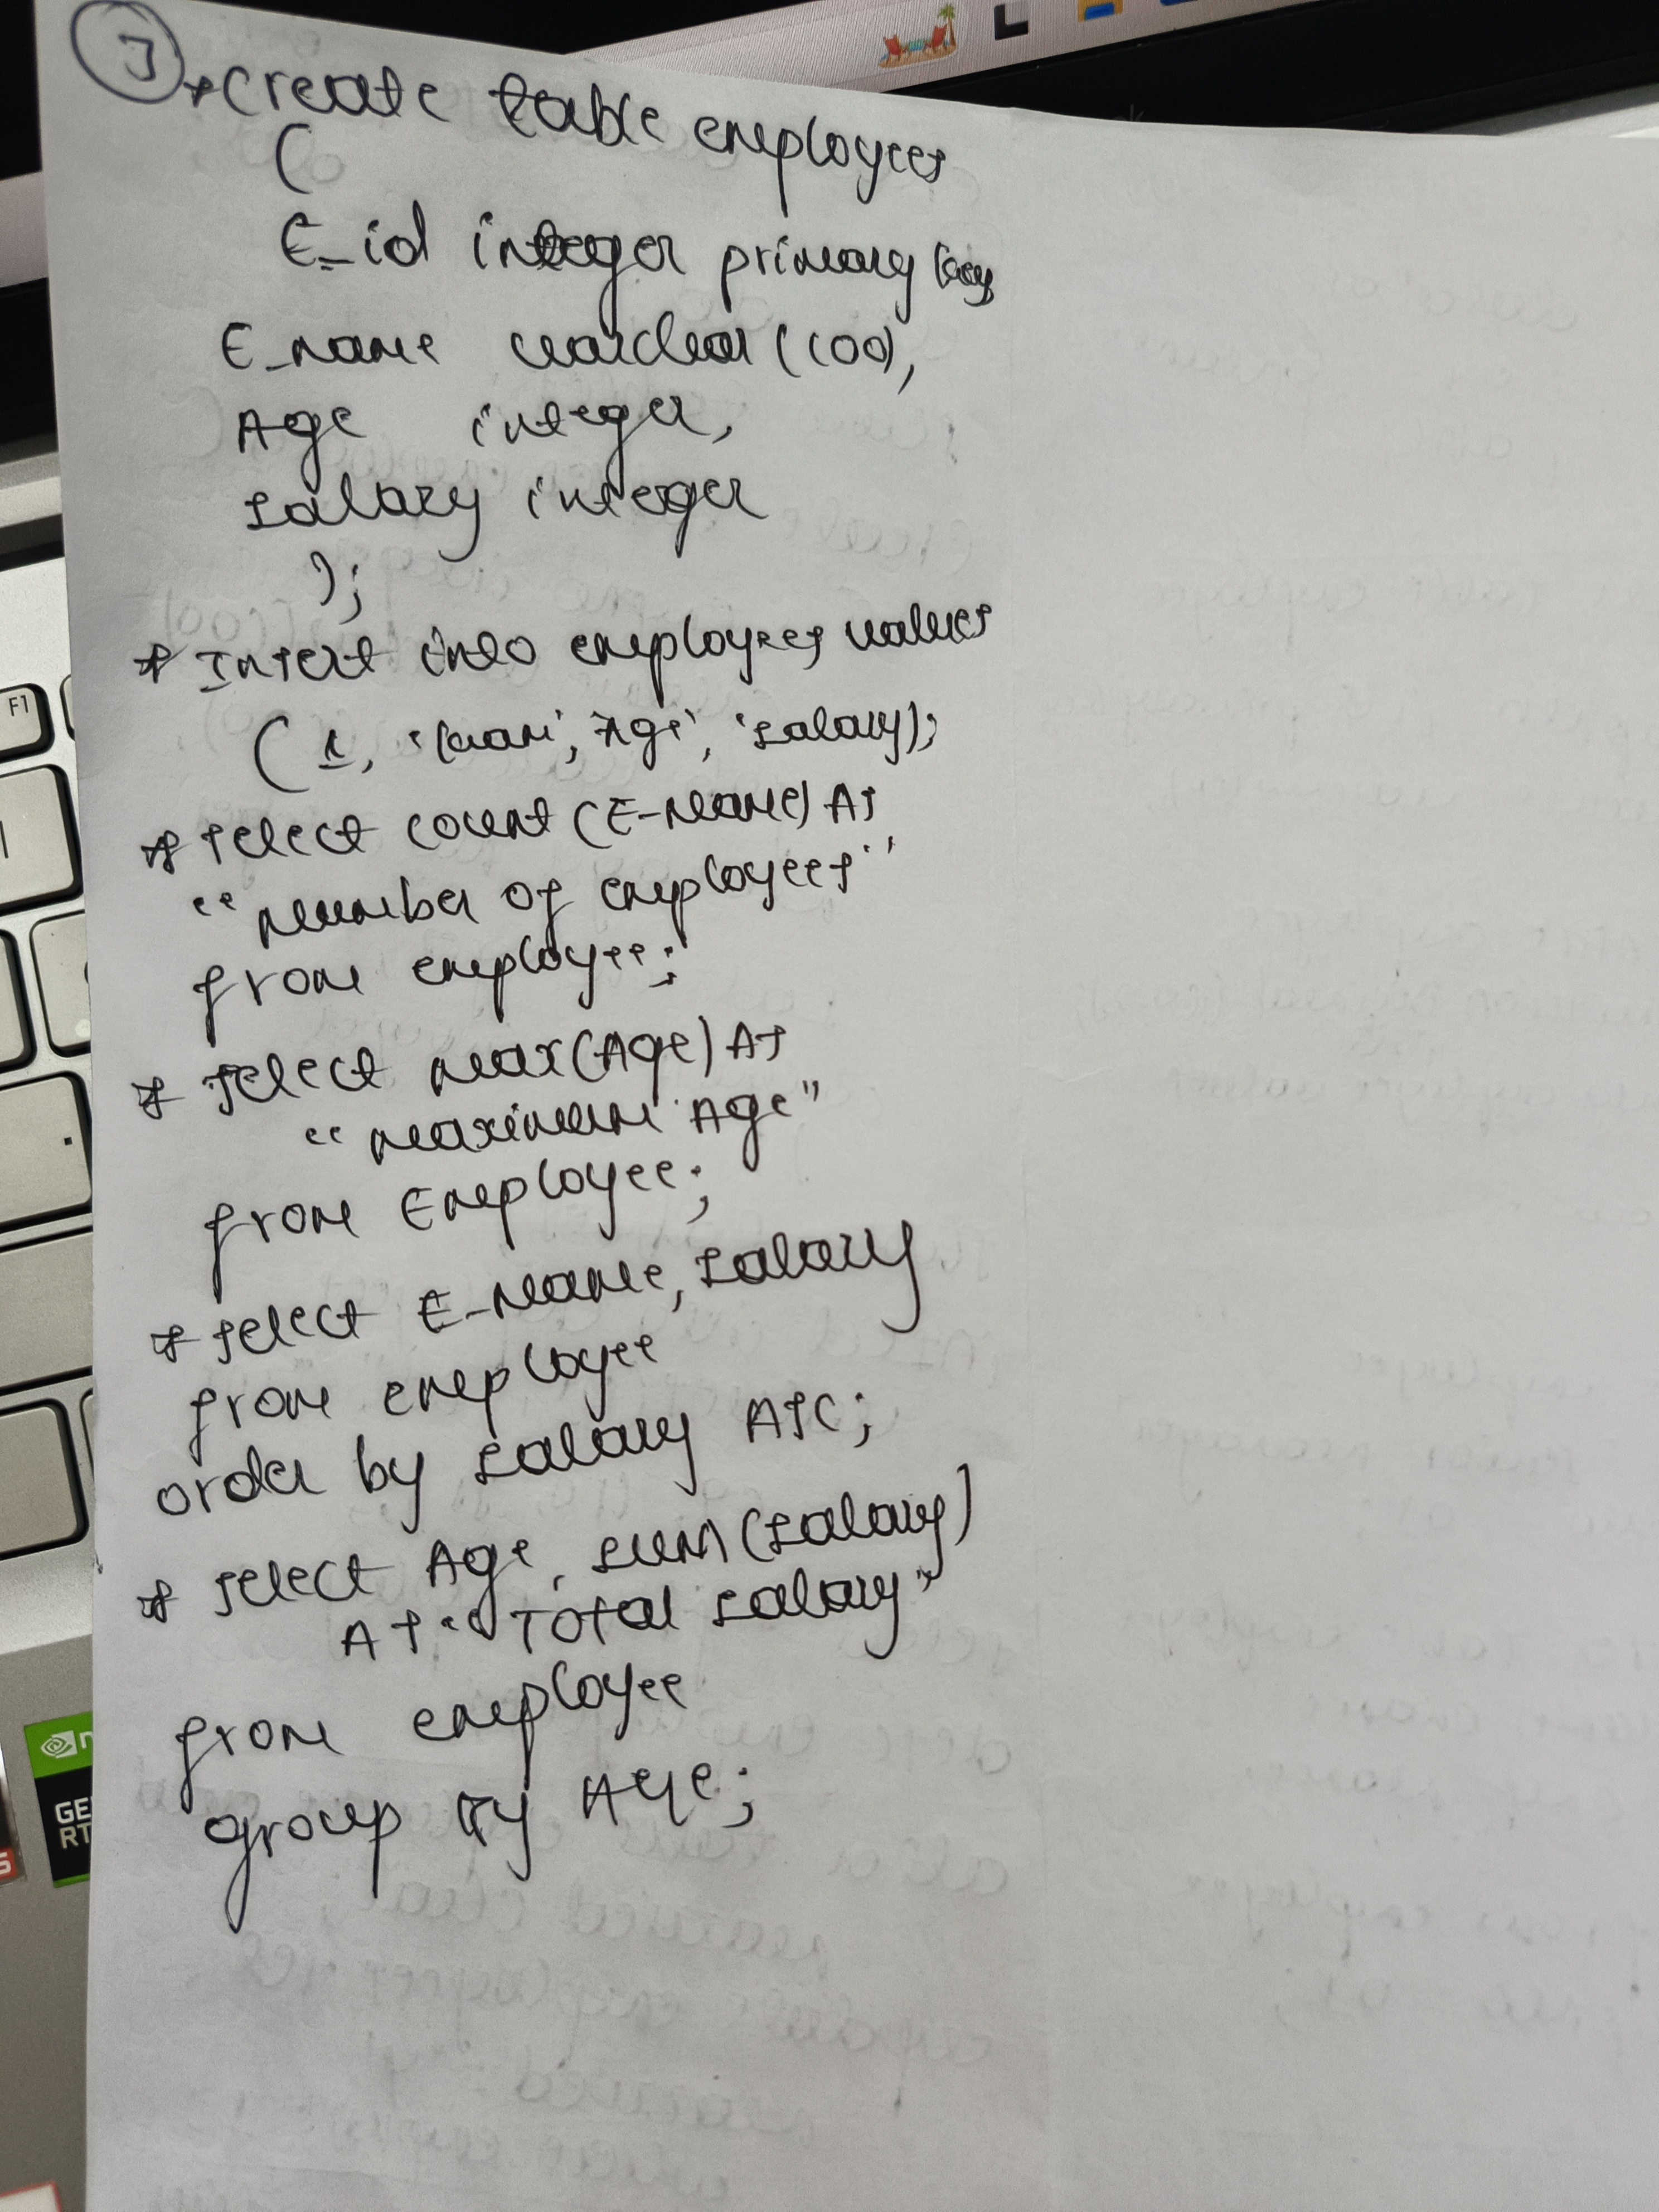 3
* create table employees
(
E_id integer primary key
E_name varchar(100),
Age integer,
salary integer
);
* Insert into employees values
(1, 'Age', 'salary);
* select count(E-Name) AS
"number of employees"
from employee;
* select max(Age) AS
"maximum Age"
from Employee;
* select E-Name, salary
from employee
order by salary ASC;
* select Age, sum(salary)
AS "Total salary"
from employee
group by Age;
F1
GE
RT